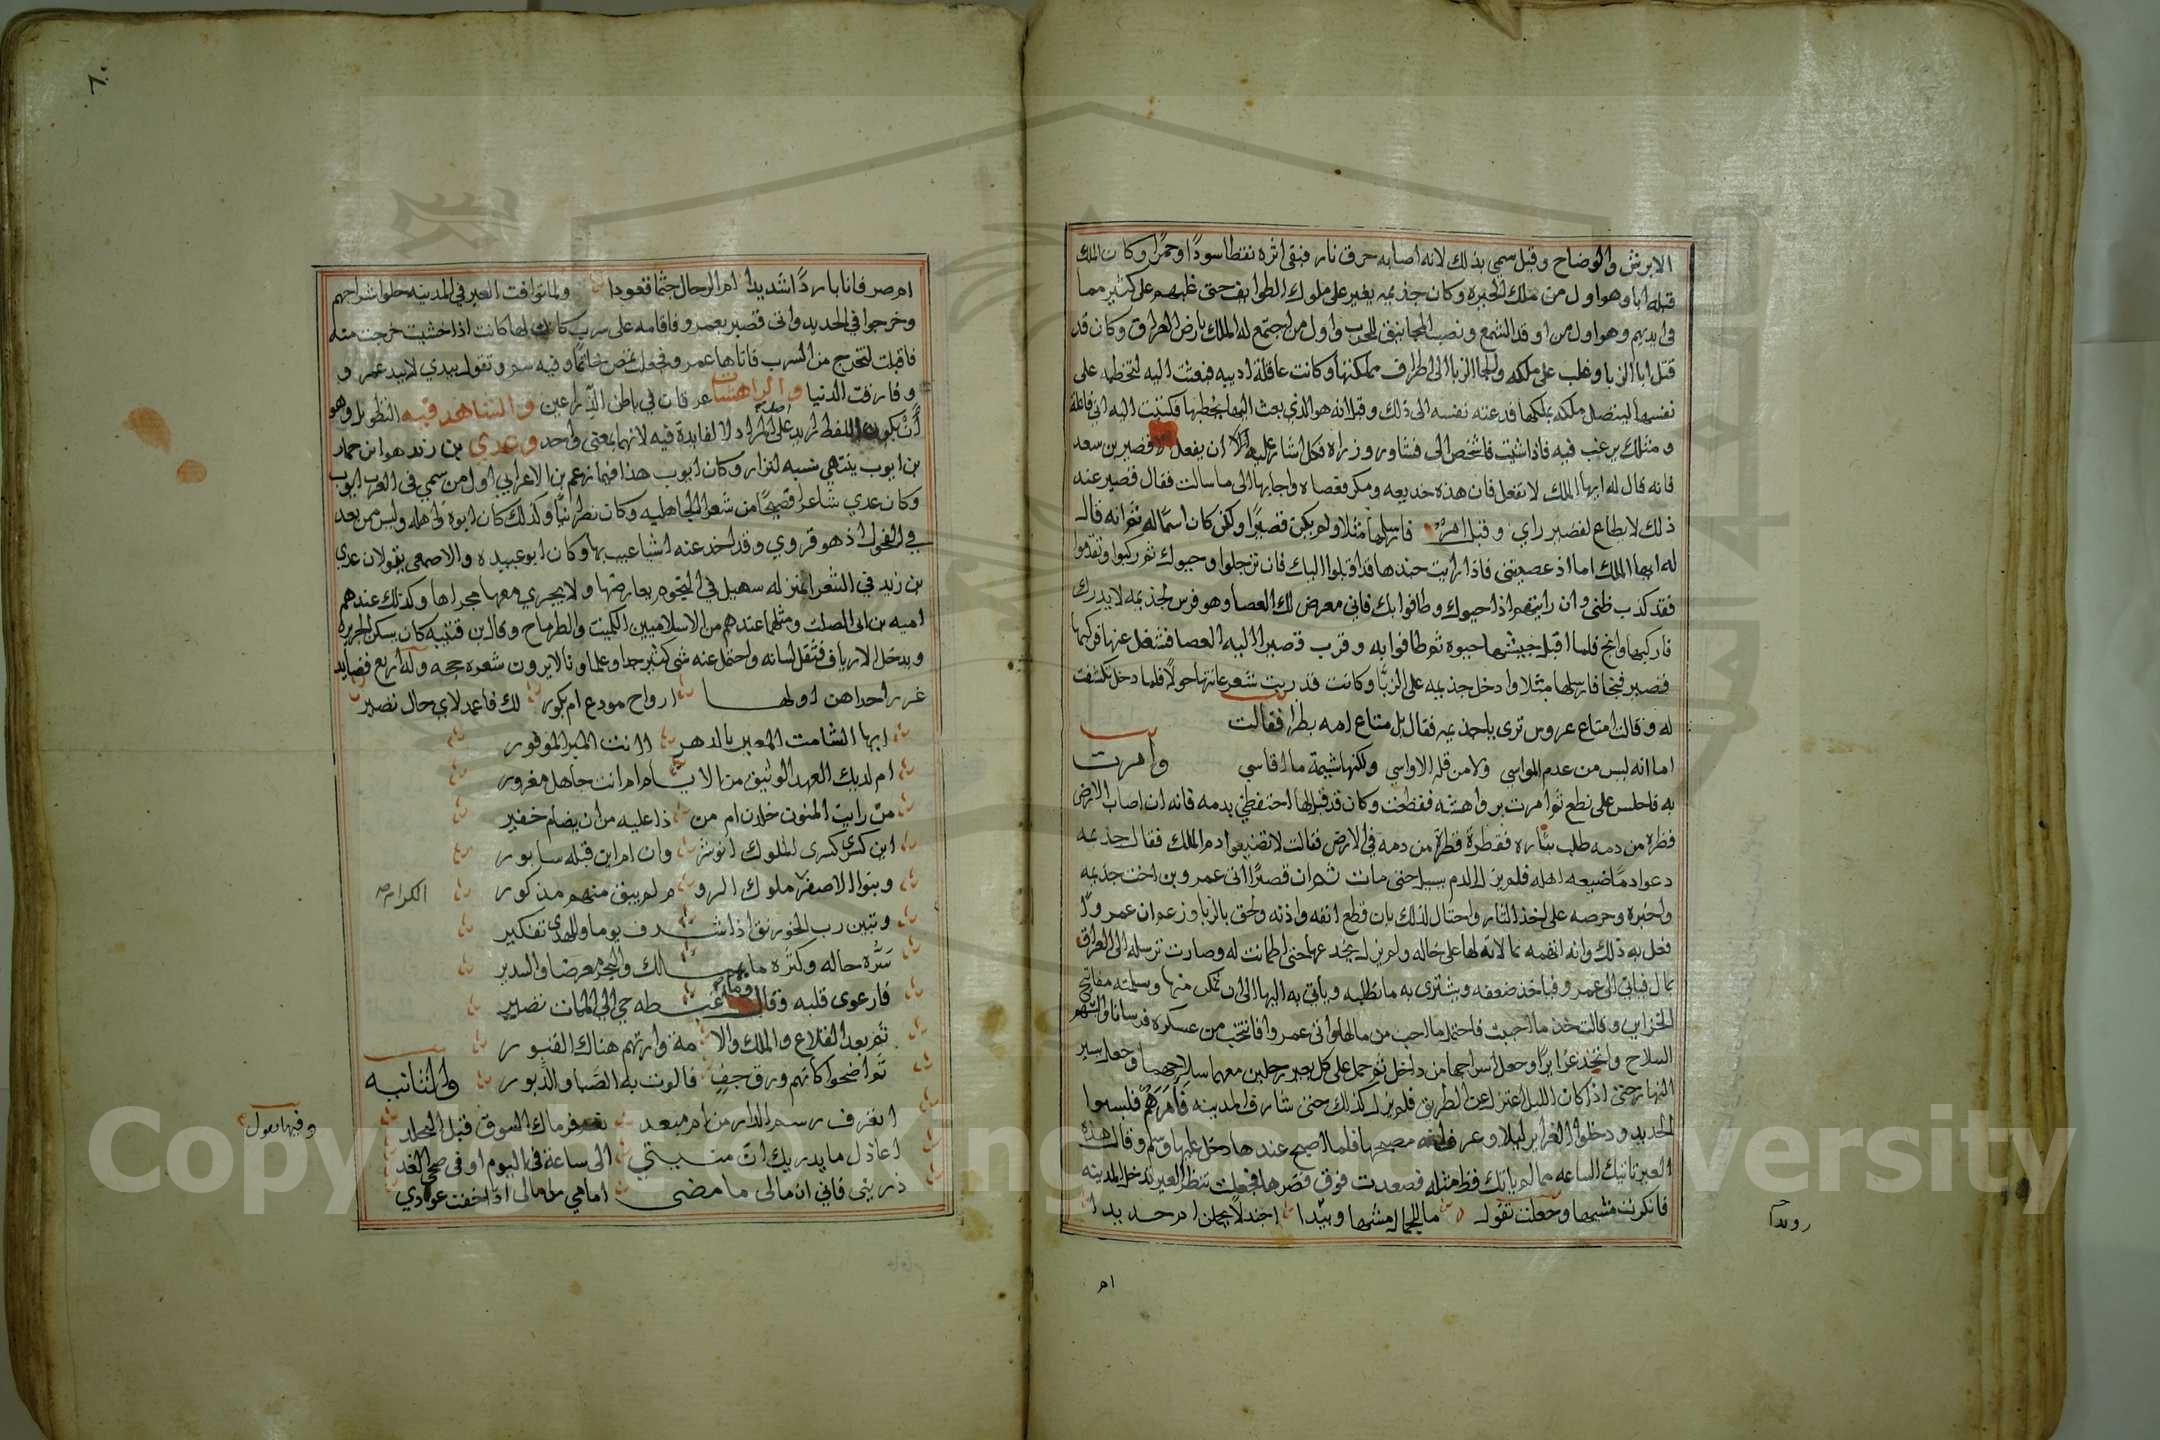 الابرش والوضاح وقيل سمي بذلك لانه اصابه حرق نار فبقى اثره نقطا سودا وحمرا وكان الملك
قبله ابا وهو اول من ملك الحيرة وكان جذيمه يغير على ملوك الطوايف حتى غلبهم على كثير مما
في ايديهم وهو اول من اوقد الشمع ونصب المجانيق للحرب واول من اجتمع له الملك بارض العراق وكان قد
قتل ابا الزبا وغلب على ملكه والجا الزبا الى اطراف مملكتها وكانت عاقلة اديبه فبعثت اليه لتخطبه على
نفسها ليتصل ملكه بملكها فدعته نفسه الى ذلك وقيل انه هو الذي بعث اليها يخطبها فكتبت اليه اني فاعلة
ومثلك يرغب فيه فاذا شيت فاشخص الى فشاور وزراه فكل اشار عليه ان يفعل الا قصير بن سعد
فانه قال له ايها الملك لا تفعل فان هذه خديعه ومكر فعصاه واجابها الى ما سالت فقال قصير عند
ذلك لا يطاع لقصير راي وقيل امر فارسلها مثلا ولم يكن قصيرا ولكن كان اسما له ثم انه قال
له ايها الملك اما اذ عصيتني فاذا رايت جندها قد اقبلوا اليك فان ترجلوا وحيوك ثم ركبوا وتقدموا
فقد كذب ظني وان رايتهم اذا حيوك وطافوا بك فاني معرض لك العصا وهو فرس لجذيمه لا يدرك
فاركبها وانج فلما اقبل جيشها حيوه ثم طافوا به وقرب قصير اليه العصا فشغل عنها فركبها
قصير فنجا فارسلها مثلا وادخل جذيمه على الزبا وكانت قد ربت شعر عانتها حولا فلما دخل تكشفت
له وقالت امتاع عروس ترى يا جذيمه فقال بل متاع امه بظرا فقالت
اما انه ليس من عدم المواسي ولا من قلة الاواسي ولكنها شيمة ما اقاسي وامرت
به فاجلس على نطع ثم امرت برواهشه فقطعت وكان قد قيل لها احتفظي بدمه فانه ان اصاب الارض
قطره من دمه طلب بثاره فقطرة قطرة من دمه في الارض فقالت لا تضيعوا دم الملك فقال جذيمه
دعوا دما ضيعه اهله فلم يزل الدم يسيل حتى مات ثم ان قصيرا اتى عمرو بن اخت جذيمه
واخبره وحرضه على اخذ الثار واحتال لذلك بان قطع انفه واذنه ولحق بالزبا وزعم ان عمروا
فعل به ذلك وانه اتهمه بمالاته لها على خاله ولم يزل يخدعها حتى اطمانت له وصارت ترسله الى العراق
بمال فياتي الى عمرو فياخذ ضعفه ويشترى به ما تطلبه وياتي به اليها الى ان تمكن منها وسلمته مفاتيح
الخزاين وقالت خذ ما احببت فاحتمل ما احب من مالها واتى عمروا فانتخب من عسكره فرسانا والبسهم
السلاح واتخذ غرايرا وجعل اشراجها من داخل ثم حمل على كل بعير رجلين معهما سلاحهما وجعل يسير
النهار حتى اذا كان الليل اعتزل عن الطريق فلم يزل كذلك حتى شارف المدينه فامرهم فلبسوا
الحديد ودخلوا الغراير ليلا وعرف انه مصبحها فلما اصبح عندها دخل عليها وسلم وقال هذه
العير تاتيك الساعه مما لم ياتك قط مثله فصعدت فوق قصرها فجعلت تنظر العير تدخل المدينه
فانكرت مشيها وجعلت تقول ما للجمال مشيها وئيدا اجندلا يحملن ام حديدا
رويدا
ام
٦٠
ام صرفانا باردا شديدا ام الرجال جثما قعودا ولما توافت العير في المدينه حلوا اشراجهم
وخرجوا في الحديد واتى قصير بعمرو فاقامه على سرب كان لها كانت اذا خشيت خرجت منه
فاقبلت لتخرج من السرب فاتاها عمرو فجعلت تمص خاتما وفيه سم وتقول بيدي لا بيد عمرو
وفارقت الدنيا والراهشان عرقان في باطن الذراعين والشاهد فيه التطويل وهو
ان يكون اللفظ ازيد على اصل المراد لا لفايدة فيه لانهما بمعنى واحد وعدي بن زيد هو ابن حمار
بن ايوب ينتهي نسبه لنزار وكان ايوب هذا فيما زعم بن الاعرابي اول من سمي في العرب ايوب
وكان عدي شاعرا فصيحا من شعر الجاهليه وكان نصرانيا وكذلك كان ابوه واهله وليس من يعد
في الفحول اذ هو قروي وقد اخذ عنه اشيا عيب بها وكان ابو عبيده والاصمعي يقولان عدي
بن زيد في الشعرا بمنزله سهيل في النجوم يعارضها ولا يجري معها مجراها وكذلك عندهم
اميه بن ابي الصلت ومثلهما عندهم من الاسلاميين الكميت والطرماح وقال بن قتيبه كان يسكن الحيرة
ويدخل الارياف فثقل لسانه واحتمل عنه شى كثير جدا وعلماونا لا يرون شعره حجه وله اربع قصايد
غرر احداهن اولها ارواح مودع ام بكور لك فاعمد لاي حال تصير
ايها الشامت المعير بالدهر اانت المبر الموفور
ام لديك العهد الوثيق من الايام ام انت جاهل مغرور
من رايت المنون خلدن ام من ذا عليه من ان يضام خفير
اين كسرى كسرى الملوك انوشر وان ام اين قبله سابور
وبنوا الاصفر ملوك الرو م لم يبق منهم مذكور
الكرام صح
وتبين رب الخورنق اذ اشرف يوما وللهدى تفكير
سره حاله وكثرة ما يملك والبحر معرضا والسدير
فارعوى قلبه فقال وما غبطه حي الي الممات تصير
ثم بعد الفلاح والملك والا مة وارتهم هناك القبور
ثم اضحوا كانهم ورق جف فالوت به الصبا والدبور والثانيه
اتعرف رسم الدار من ام معبد نعم فرماك الشوق قبل التجلد
وفيها يقول
اعاذل ما يدريك ان منيتي الى ساعة في اليوم او في ضحى الغد
ذريني فاني ان مالى ما مضى امامي من مالى اذا خفت عوادي
Copyright © King Saud University